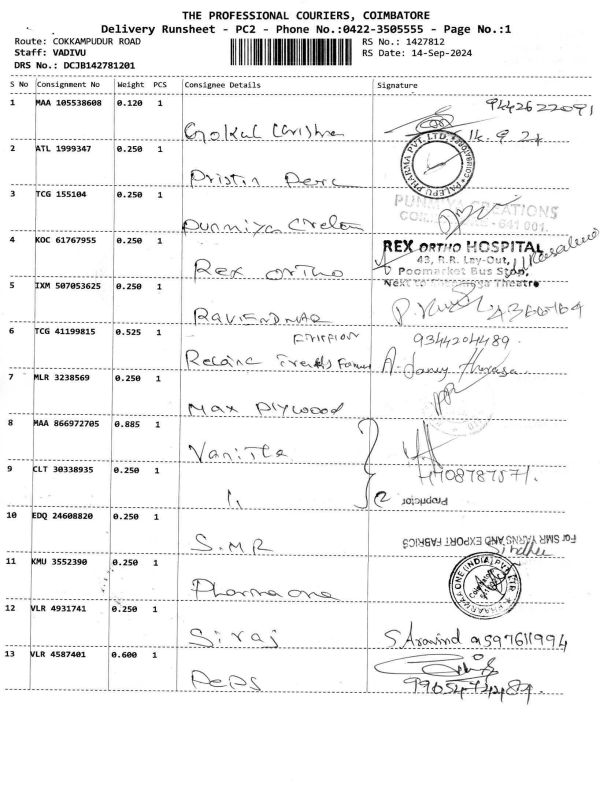 THE PROFESSIONAL COURIERS, COIMBATORE
Delivery Runsheet - PC2 - Phone No.:0422-3505555 - Page No.:1
Route: COKKAMPUDUR ROAD
RS No.: 1427812
Staff: VADIVU
RS Date: 14-Sep-2024
DRS No.: DCJB142781201
S No Consignment No Weight PCS Consignee Details Signature
1 MAA 105538608 0.120 1
9442622091
Gokul Chrishna
14.9.24
2 ATL 1999347 0.250 1
PALEPU PHARMA PVT. LTD
Pristin
3 TCG 155104 0.250 1
CREATIONS
641 001.
Punniya
4 KOC 61767955 0.250 1
REX ORTHO HOSPITAL
43, R.R. Lay-Out,
Poomarket Bus Stop,
Rex ortho
Next to Theatre
5 IXM 507053625 0.250 1
6 TCG 41199815 0.525 1
9344204489
Trends
7 MLR 3238569 0.250 1
Max Plywood
8 MAA 866972705 0.885 1
Vanilla
9 CLT 30338935 0.250 1
Proprietor
10 EDQ 24608820 0.250 1
For SMR YARNS AND EXPORT FABRICS
S.M.R
11 KMU 3552390 0.250 1
PHARMA ONE (INDIA) PVT LTD
Pharma one
12 VLR 4931741 0.250 1
Siraj
S Aravind
13 VLR 4587401 0.600 1
PEPS